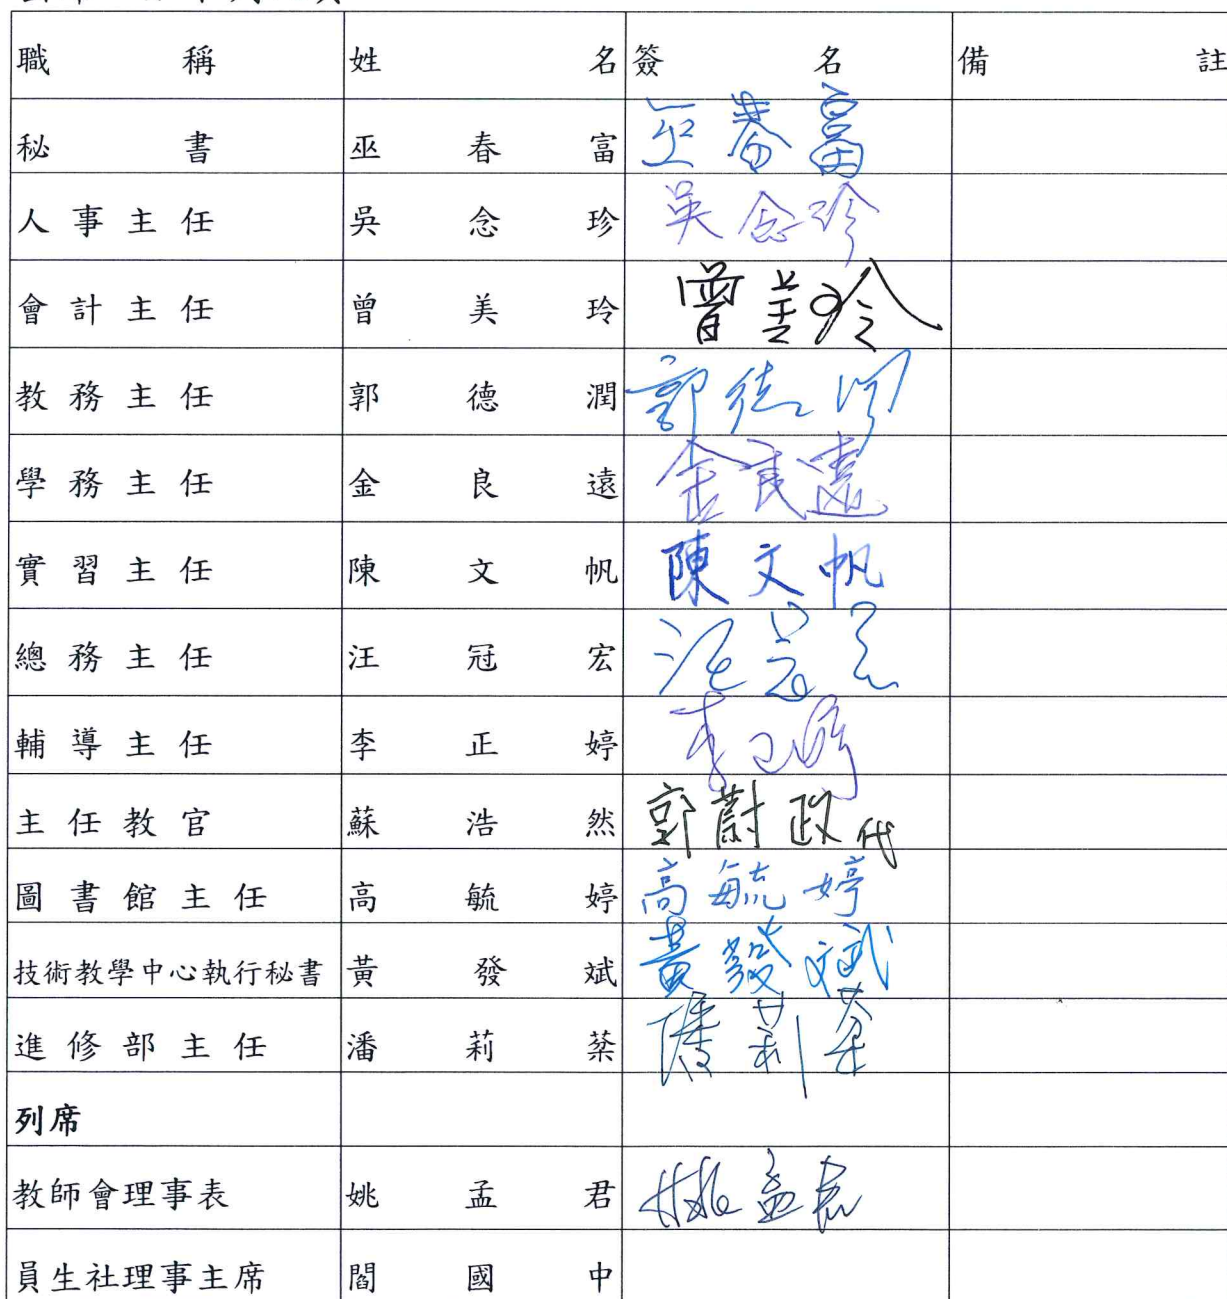 職稱 姓名 簽名 備註
秘書 巫春富 巫春富
人事主任 吳念珍 吳念珍
會計主任 曾美玲 曾美玲
教務主任 郭德潤 郭德潤
學務主任 金良遠 金良遠
實習主任 陳文帆 陳文帆
總務主任 汪冠宏 汪冠宏
輔導主任 李正婷 李正婷
主任教官 蘇浩然 郭蔚政代
圖書館主任 高毓婷 高毓婷
技術教學中心執行秘書 黃發斌 黃發斌
進修部主任 潘莉棻 潘莉棻
列席
教師會理事表 姚孟君 姚孟君
員生社理事主席 閻國中